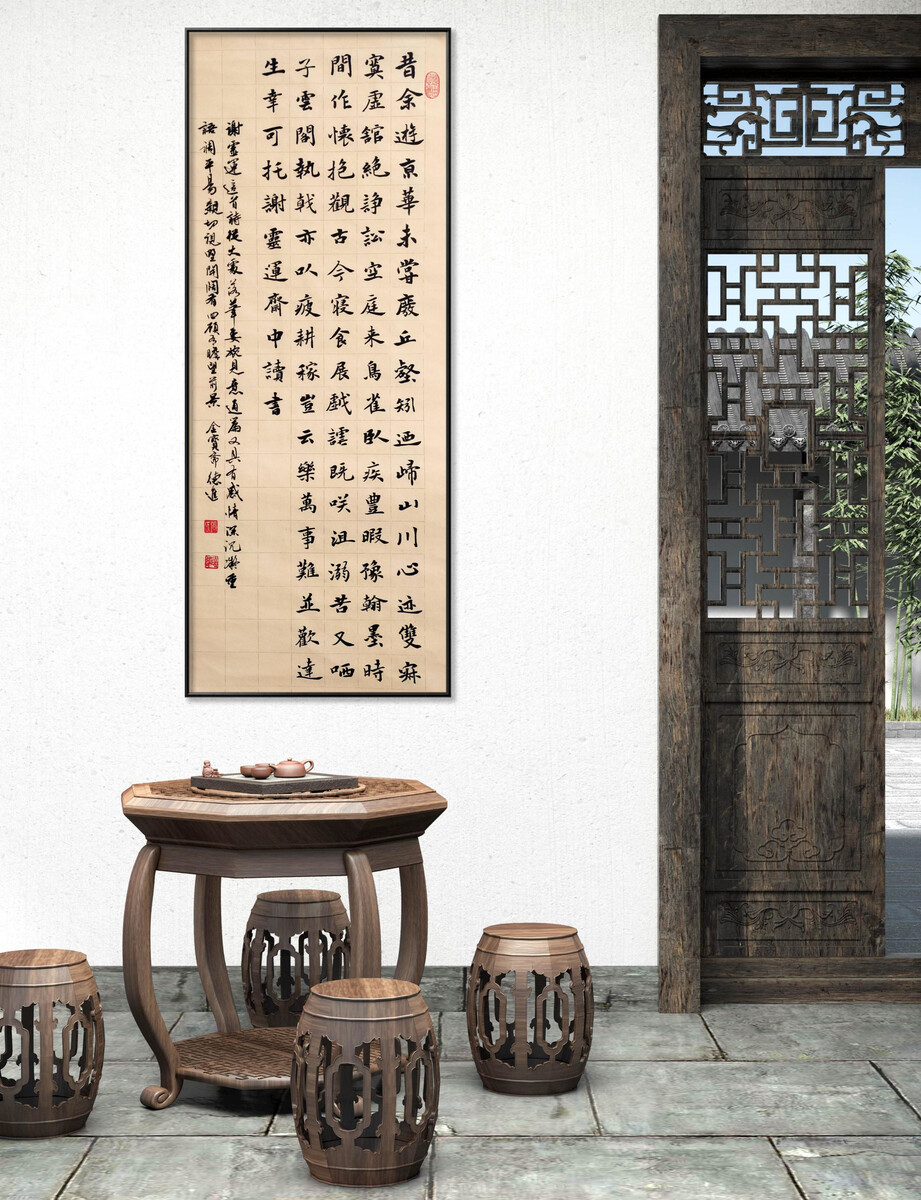 昔余遊京華未嘗廢丘壑矧迺歸山川心迹雙寂
寞虛舘絕諍訟空庭来鳥雀臥疾豊暇豫翰墨時
間作懷抱觀古今寢食展戯謔旣咲沮溺苦又哂
子雲閣執戟亦以疲耕稼豈云樂萬事難並歡達
生幸可托謝靈運齋中讀書
謝靈運這首詩從大處落筆委婉見意通篇又具有感情深沉凝重
語調平易親切視野開闊有回顧有瞻望前景